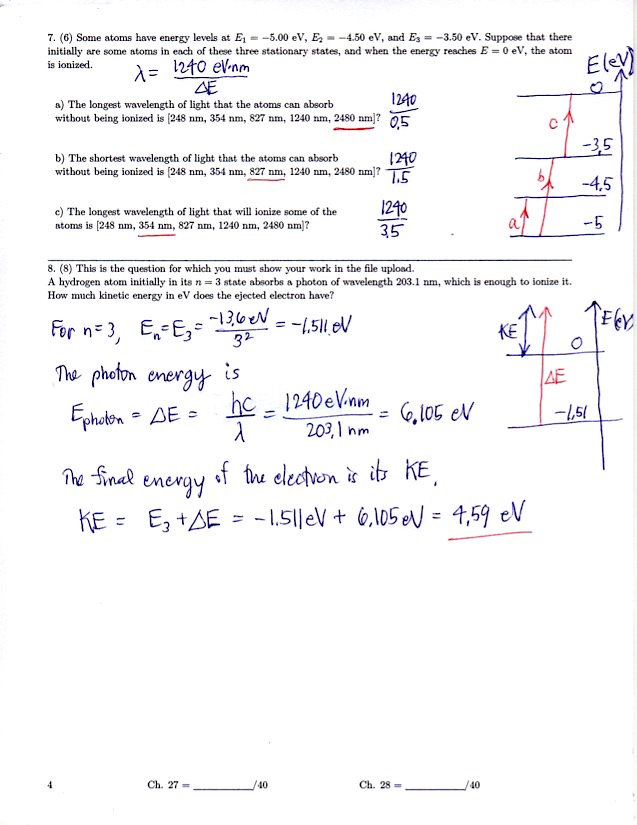 7. (6) Some atoms have energy levels at E₁ = −5.00 eV, E₂ = −4.50 eV, and E₃ = −3.50 eV. Suppose that there
initially are some atoms in each of these three stationary states, and when the energy reaches E = 0 eV, the atom
is ionized.
λ = 1240 eV·nm / ΔE
E(eV)
0
a) The longest wavelength of light that the atoms can absorb
without being ionized is [248 nm, 354 nm, 827 nm, 1240 nm, 2480 nm]?
1240 / 0.5
c
−3,5
b) The shortest wavelength of light that the atoms can absorb
without being ionized is [248 nm, 354 nm, 827 nm, 1240 nm, 2480 nm]?
1240 / 1.5
b
−4,5
c) The longest wavelength of light that will ionize some of the
atoms is [248 nm, 354 nm, 827 nm, 1240 nm, 2480 nm]?
1240 / 3.5
a
−5
8. (8) This is the question for which you must show your work in the file upload.
A hydrogen atom initially in its n = 3 state absorbs a photon of wavelength 203.1 nm, which is enough to ionize it.
How much kinetic energy in eV does the ejected electron have?
For n=3, Eₙ = E₃ = −13,6 eV / 3² = −1.511 eV
KE
E(eV)
0
The photon energy is
ΔE
E photon = ΔE = hc / λ = 1240 eV·nm / 203,1 nm = 6,105 eV
−1,51
The final energy of the electron is its KE,
KE = E₃ + ΔE = −1.511 eV + 6,105 eV = 4,59 eV
4 Ch. 27 = ________/40 Ch. 28 = ________/40